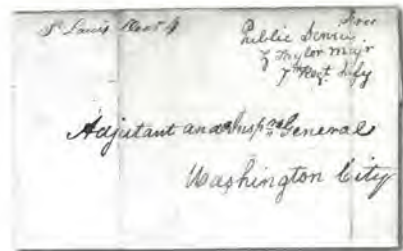 St Louis Novr 4
Free
Public Service
Z Taylor Majr
7th Regt. Infy
Adjutant and Inspr General
Washington City